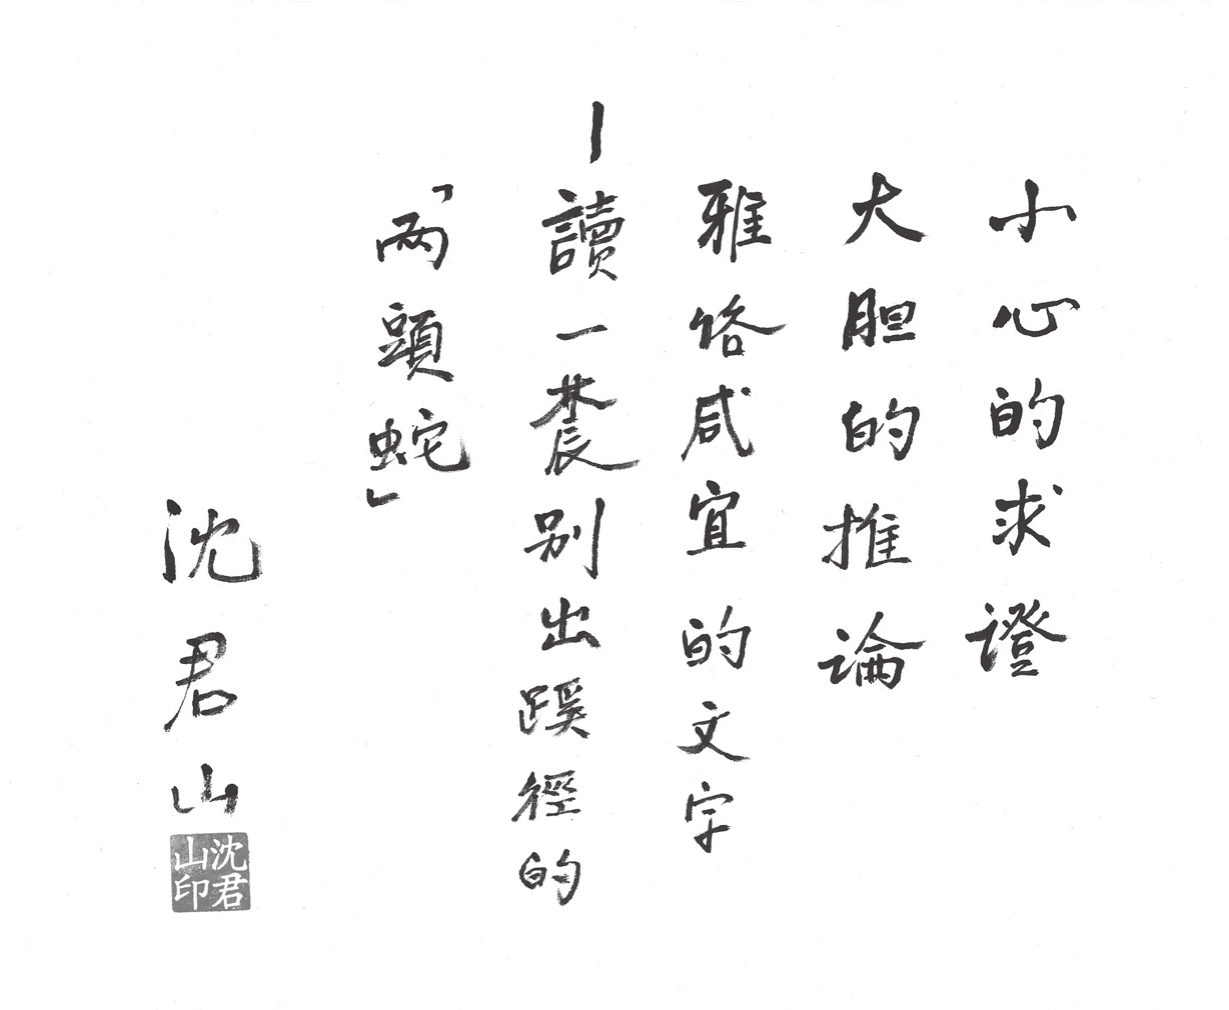 小心的求證
大胆的推論
雅俗咸宜的文字
—讀一辳別出蹊徑的
「兩頭蛇」
沈君山
沈君
山印